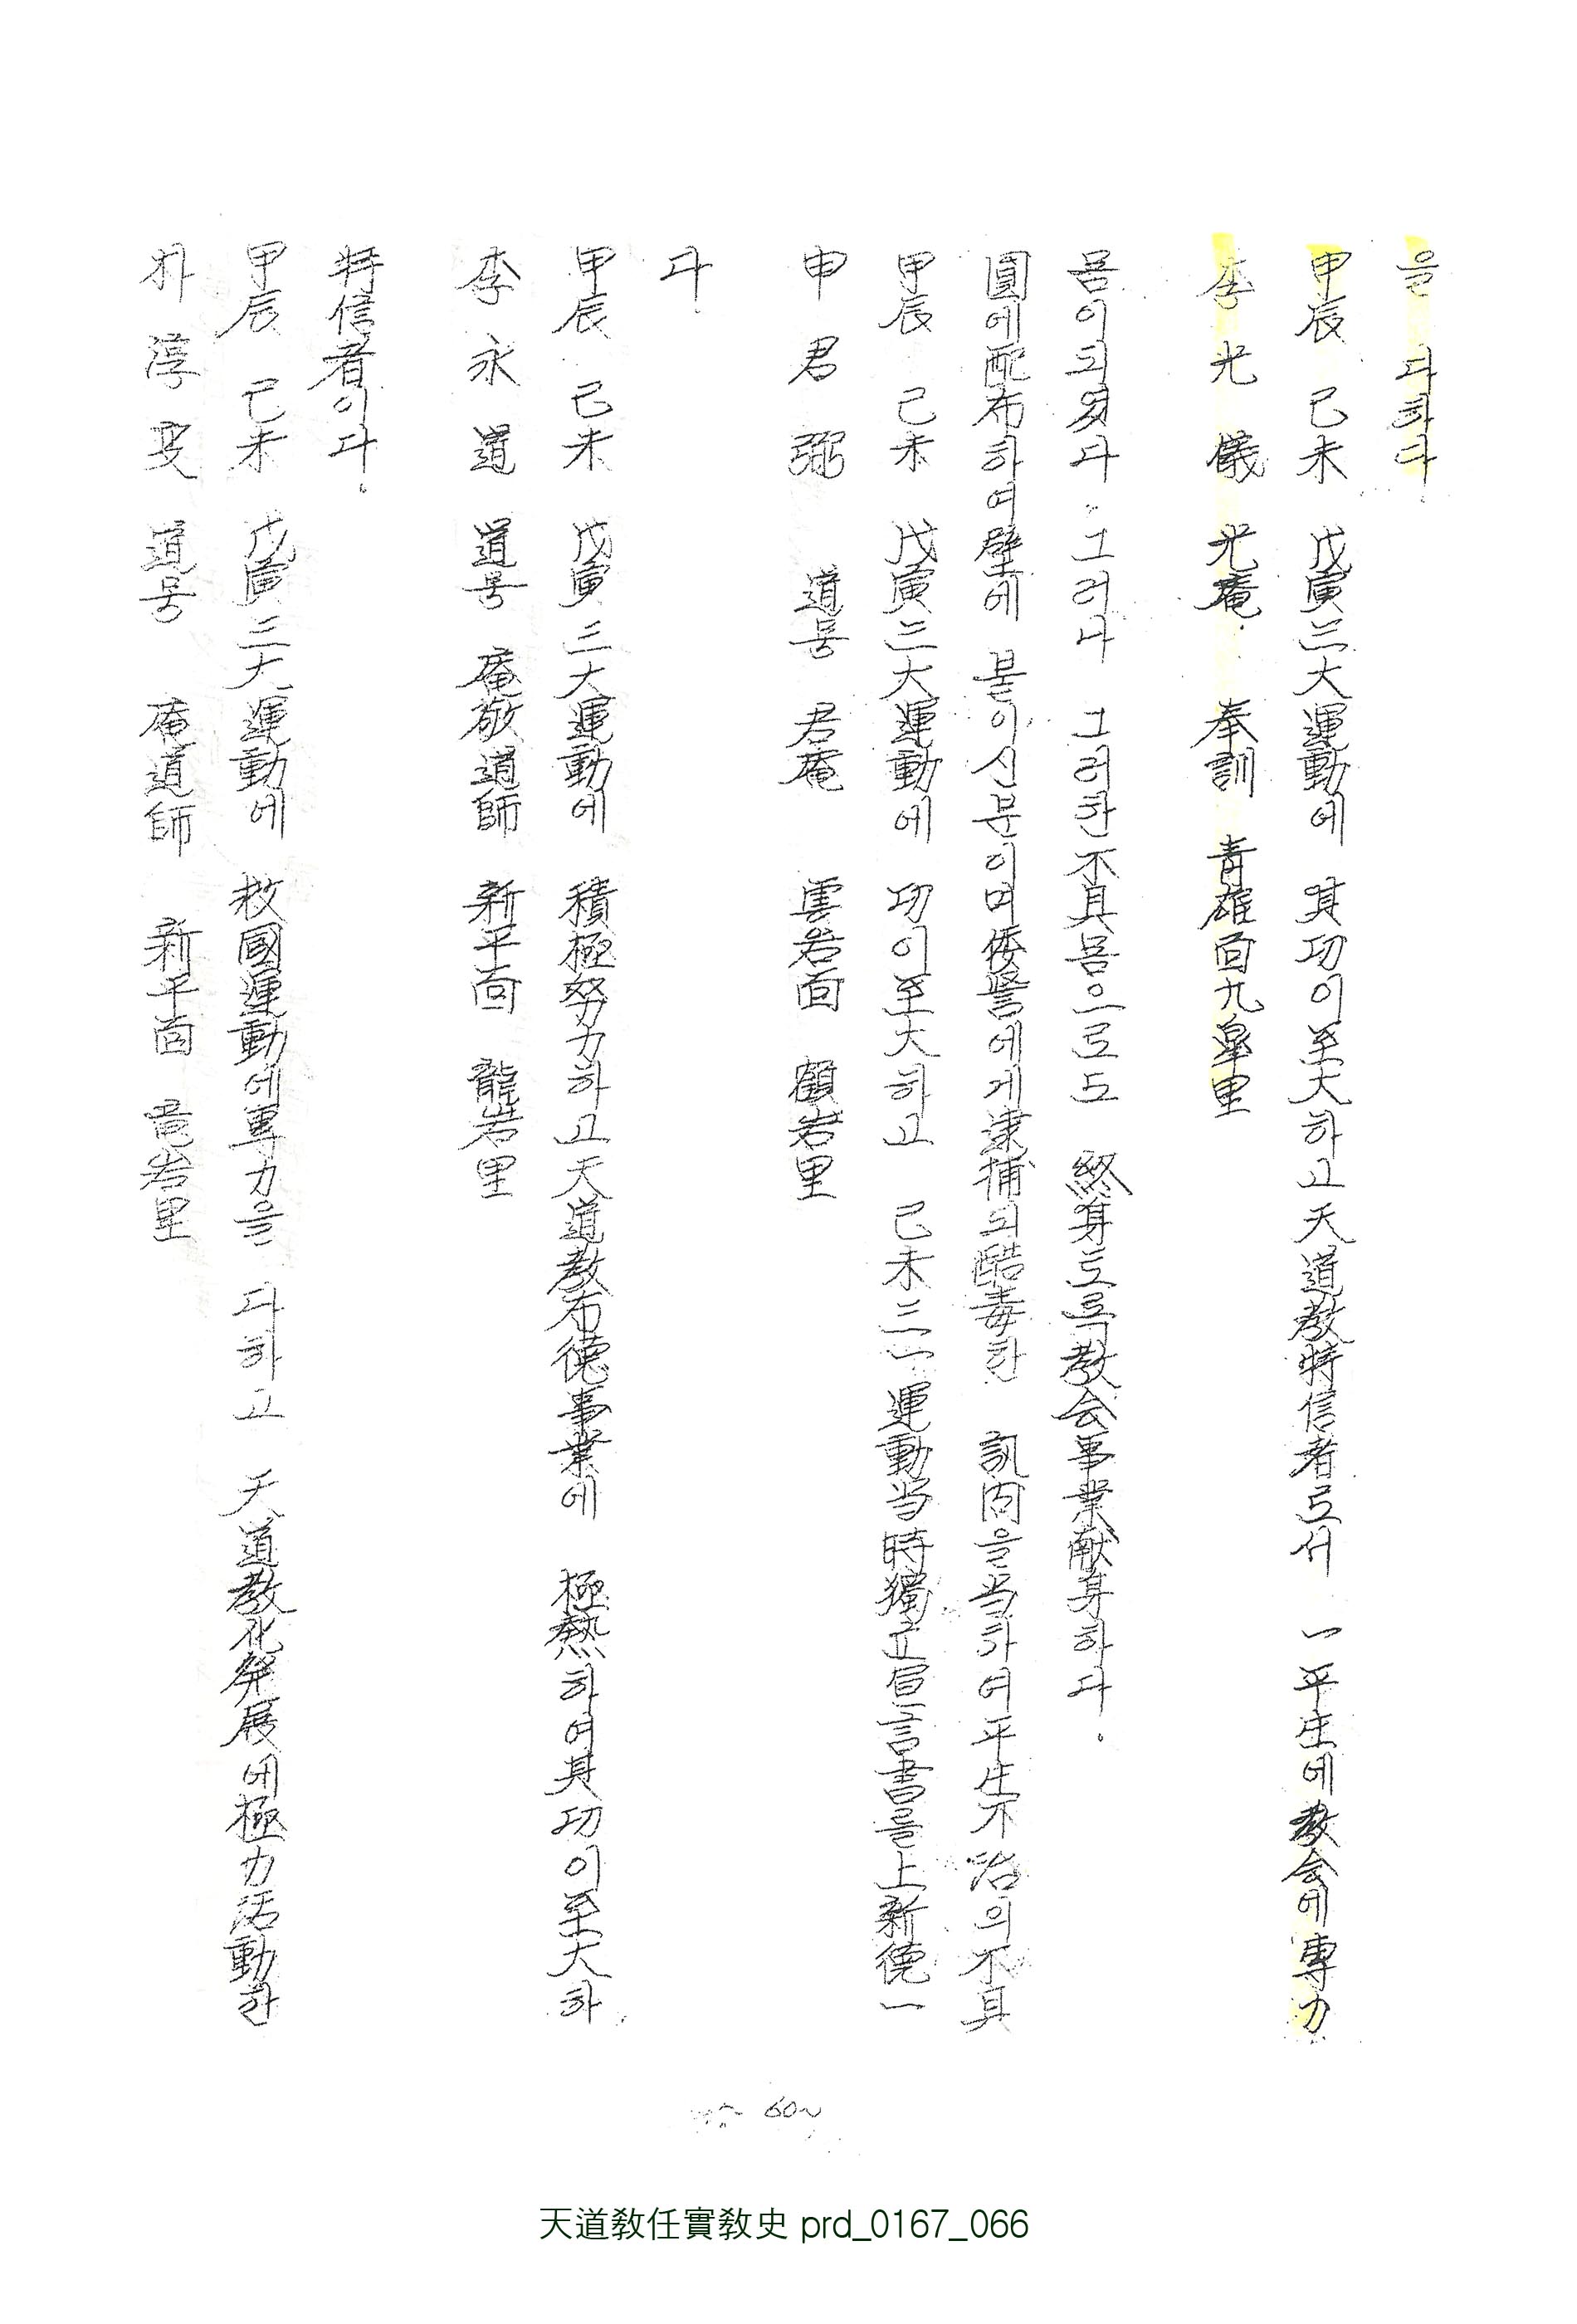 朴淳호 道号 菴道師 新平面 竜岩里
甲辰 己未 戊寅三大運動에 救國運動에專力을 다하고 天道敎化発展에極力活動한
特信者이다.
李永道 道号 菴敬道師 新平面 龍岩里
甲辰 己未 戊寅三大運動에 積極努力하고天道敎布德事業에 極熱하여其功이至大하
다.
申君弼 道号 君菴 雲岩面 顧岩里
甲辰 己未 戊寅三大運動에 功이至大하고 己未三一運動当時獨立宣言書를上新德一
圓에配布하여壁에 붙이신분이며倭警에게逮捕되酷毒한 訊问을当하여平生不治의不具
몸이되였다. 그러나 그러한不具몸으로도 終身토록敎会事業献身하다.
李光儀 光菴. 奉訓 靑雄面九皐里
甲辰 己未 戊寅三大運動에 其功이至大하고天道敎特信者로서 一平生에敎会에專力
을 다하다.
60~
天道敎任實敎史 prd_0167_066